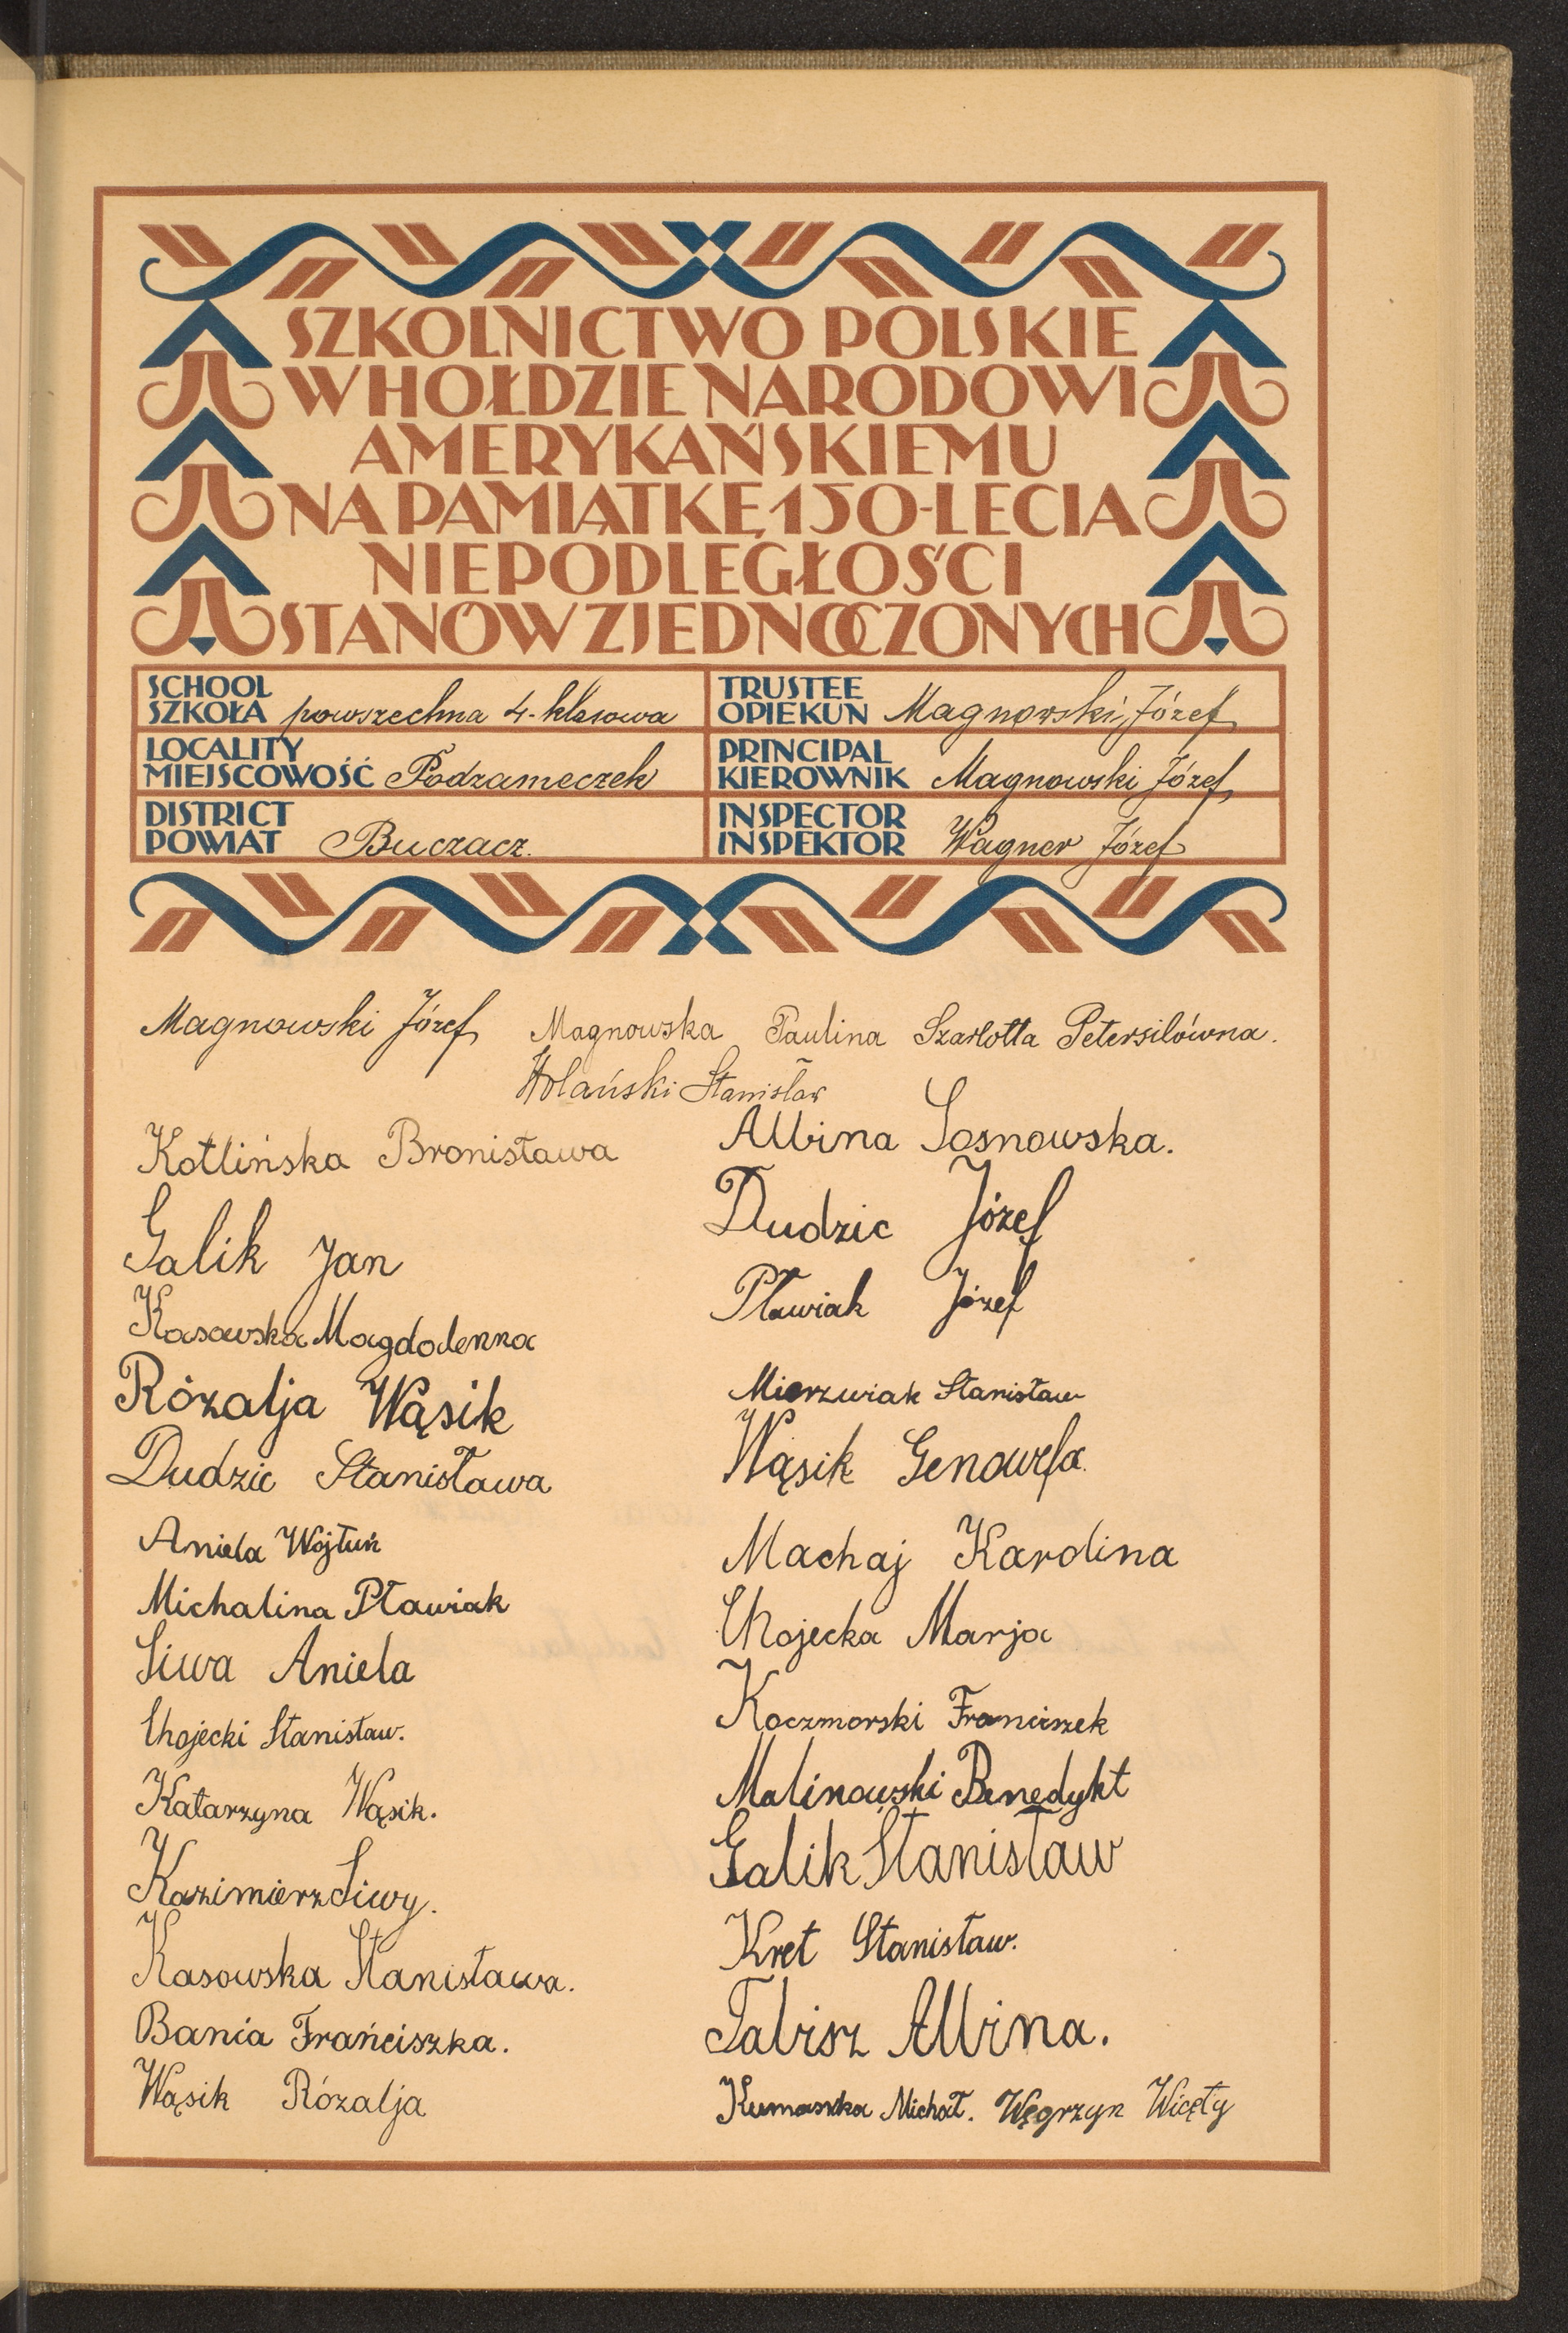 SZKOLNICTWO POLSKIE
W HOŁDZIE NARODOWI
AMERYKAŃSKIEMU
NA PAMIĄTKĘ 150-LECIA
NIEPODLEGŁOŚCI
STANÓW ZJEDNOCZONYCH
SCHOOL
SZKOŁA powszechna 4-klasowa
TRUSTEE
OPIEKUN Magnowski Józef
LOCALITY
MIEJSCOWOŚĆ Podzameczek
PRINCIPAL
KIEROWNIK Magnowski Józef
DISTRICT
POWIAT Buczacz.
INSPECTOR
INSPEKTOR Wagner Józef
Magnowski Józef Magnowska Paulina Szarlotta Petersilówna.
Wolański Stanisław
Kotlińska Bronisława
Galik Jan
Kasowska Magdolenna
Rózalja Wąsik
Dudzic Stanisława
Aniela Wojtuń
Michalina Pławiak
Siwa Aniela
Chojecki Stanisław.
Katarzyna Wąsik.
Kazimierz Siwy.
Kasowska Stanisława.
Bania Frańciszka.
Wąsik Rózalja
Albina Sosnowska.
Dudzic Józef
Pławiak Józef
Mierzwiak Stanisław
Wąsik Genowefa.
Machaj Karolina
Chojecka Marja
Koczmorski Franciszek
Malinowski Benedykt
Galik Stanisław
Kret Stanisław.
Tabisz Albina.
Kumaszka Michał. Węgrzyn Wicęty